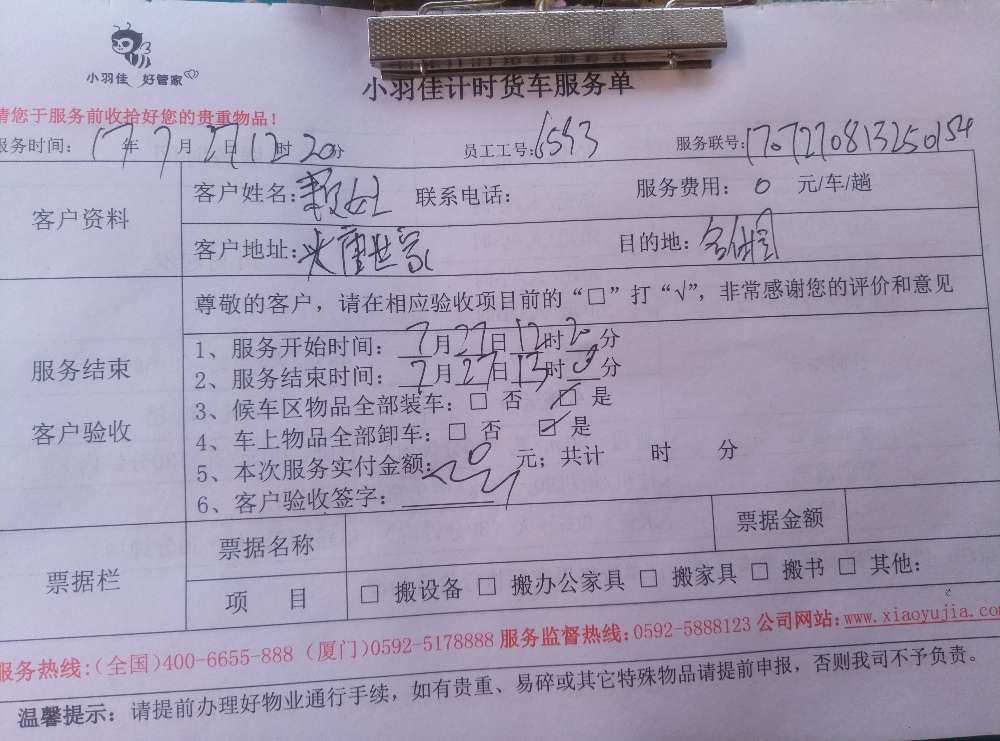 小羽佳 好管家
小羽佳计时货车服务单
请您于服务前收拾好您的贵重物品！
服务时间： 17年7月27日12时20分 员工工号:6593 服务联号:1707270813250154
客户资料
客户姓名: 联系电话： 服务费用： 0 元/车/趟
客户地址: 世家 目的地：
尊敬的客户，请在相应验收项目前的“□”打“√”，非常感谢您的评价和意见
服务结束
客户验收
1、服务开始时间： 7月27日12时20分
2、服务结束时间： 7月27日13时0分
3、候车区物品全部装车：□ 否 ☑ 是
4、车上物品全部卸车：□ 否 ☑ 是
5、本次服务实付金额: 0 元；共计 时 分
6、客户验收签字：
票据栏
票据名称 票据金额
项 目 □ 搬设备 □ 搬办公家具 □ 搬家具 □ 搬书 □ 其他：
服务热线:(全国)400-6655-888 (厦门)0592-5178888 服务监督热线:0592-5888123 公司网站:www.xiaoyujia.com
温馨提示：请提前办理好物业通行手续，如有贵重、易碎或其它特殊物品请提前申报，否则我司不予负责。